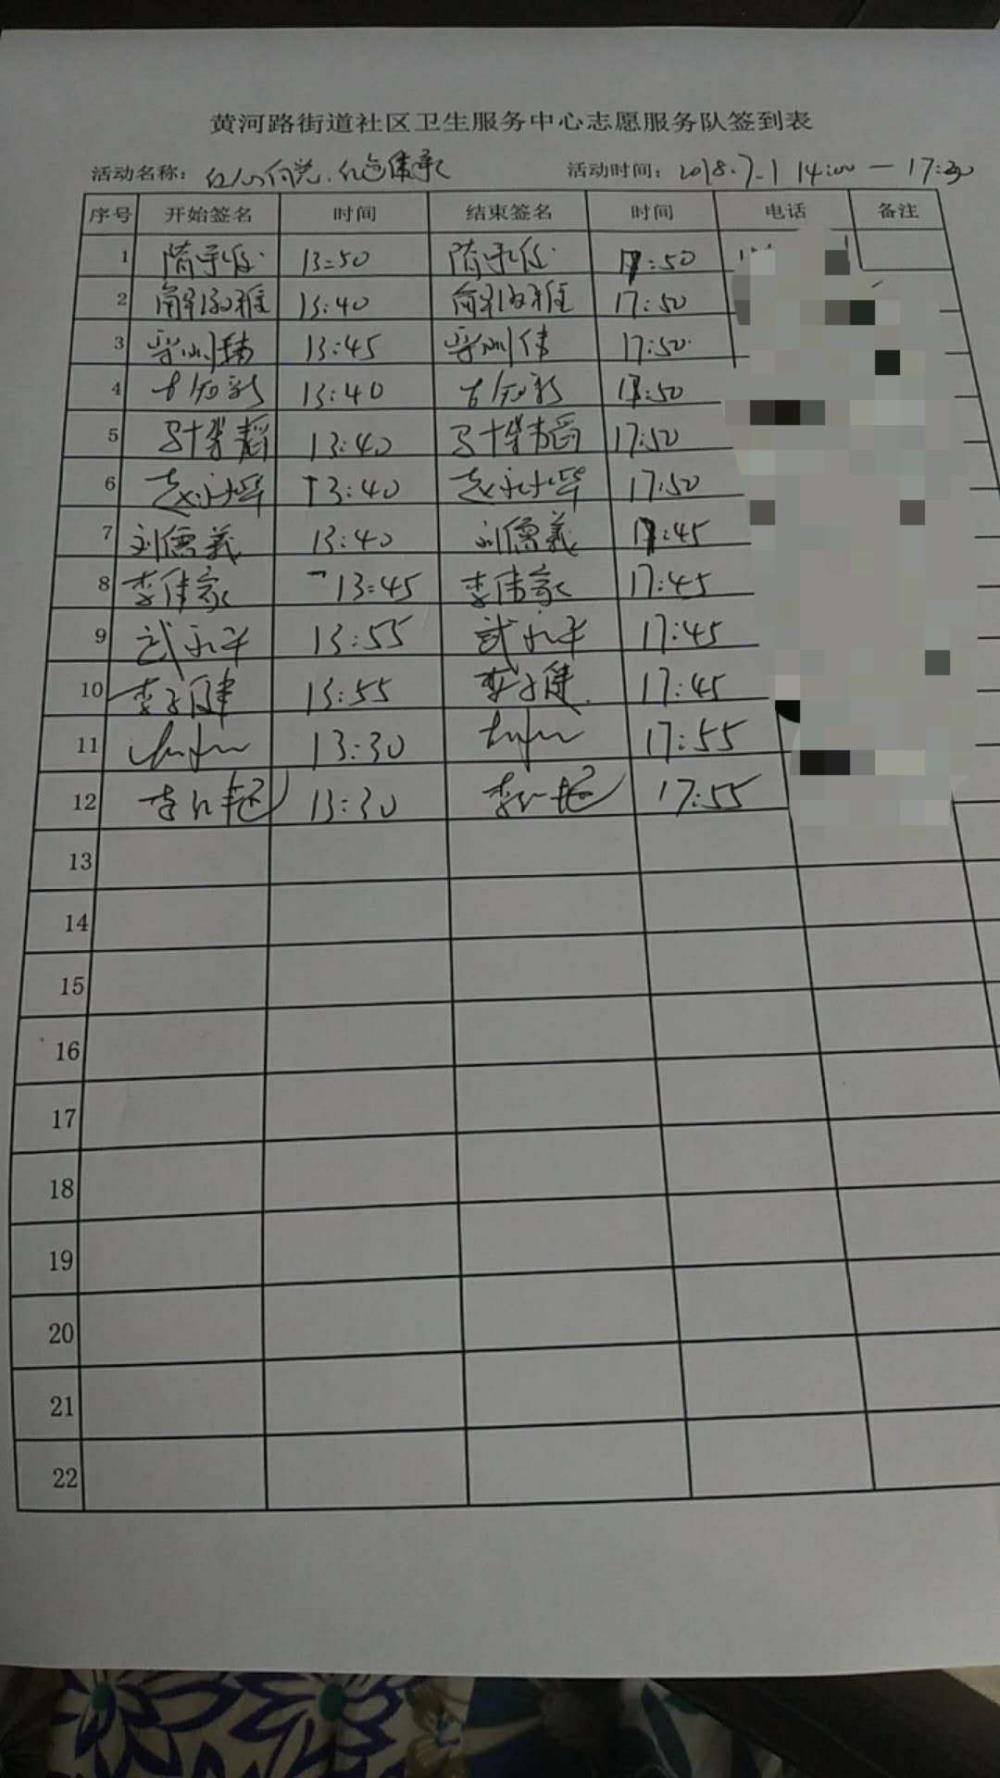 黄河路街道社区卫生服务中心志愿服务队签到表
活动名称：红心向党、红色传承 活动时间：2018.7.1 14:00 — 17:30
序号 开始签名 时间 结束签名 时间 电话 备注
1 13:50 17:50
2 13:40 17:50
3 13:45 17:50
4 13:40 17:50
5 13:40 17:50
6 赵永华 13:40 赵永华 17:50
7 刘德義 13:40 刘德義 17:45
8 李伟家 13:45 李伟家 17:45
9 武永平 13:55 武永平 17:45
10 李子健 13:55 李子健 17:45
11 13:30 17:55
12 李红艳 13:30 李红艳 17:55
13
14
15
16
17
18
19
20
21
22